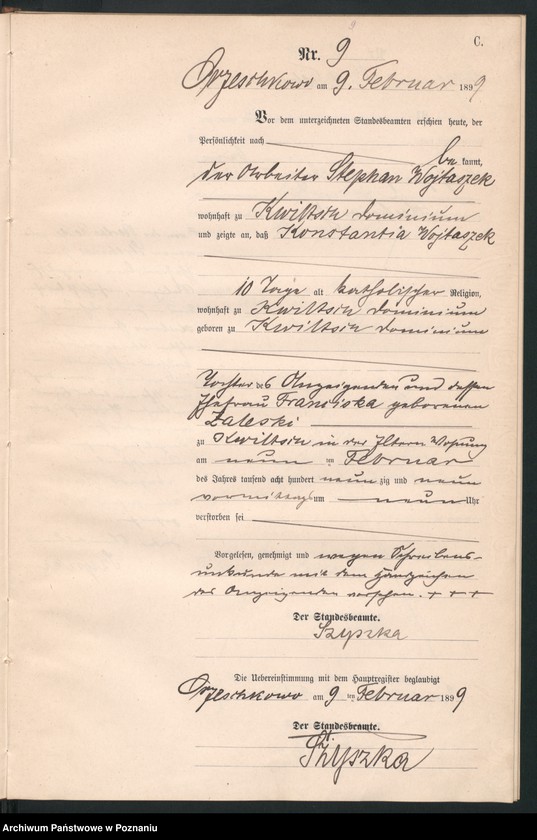 9
C.
Nr. 9
Orzeschkowo am 9. Februar 1899
Vor dem unterzeichneten Standesbeamten erschien heute, der
Persönlichkeit nach
be kannt,
der Arbeiter Stephan Wojtaszek
wohnhaft zu Kwiltsch Dominium
und zeigte an, daß Konstantia Wojtaszek
10 Tage alt katholischer Religion,
wohnhaft zu Kwiltsch Dominium
geboren zu Kwiltsch Dominium
Tochter des Anzeigenden und dessen
Ehefrau Franciska geborenen
Zaleski
zu Kwiltsch in der Eltern Wohnung
am neun ten Februar
des Jahres tausend acht hundert neun zig und neun
vormittags um neun Uhr
verstorben sei
Vorgelesen, genehmigt und wegen Schreibens-
unkunde mit dem Handzeichen
des Anzeigenden versehen. + + +
Der Standesbeamte.
Szyszka
Die Uebereinstimmung mit dem Hauptregister beglaubigt
Orzeschkowo am 9 ten Februar 1899
Der Standesbeamte.
Szyszka
Archiwum Państwowe w Poznaniu